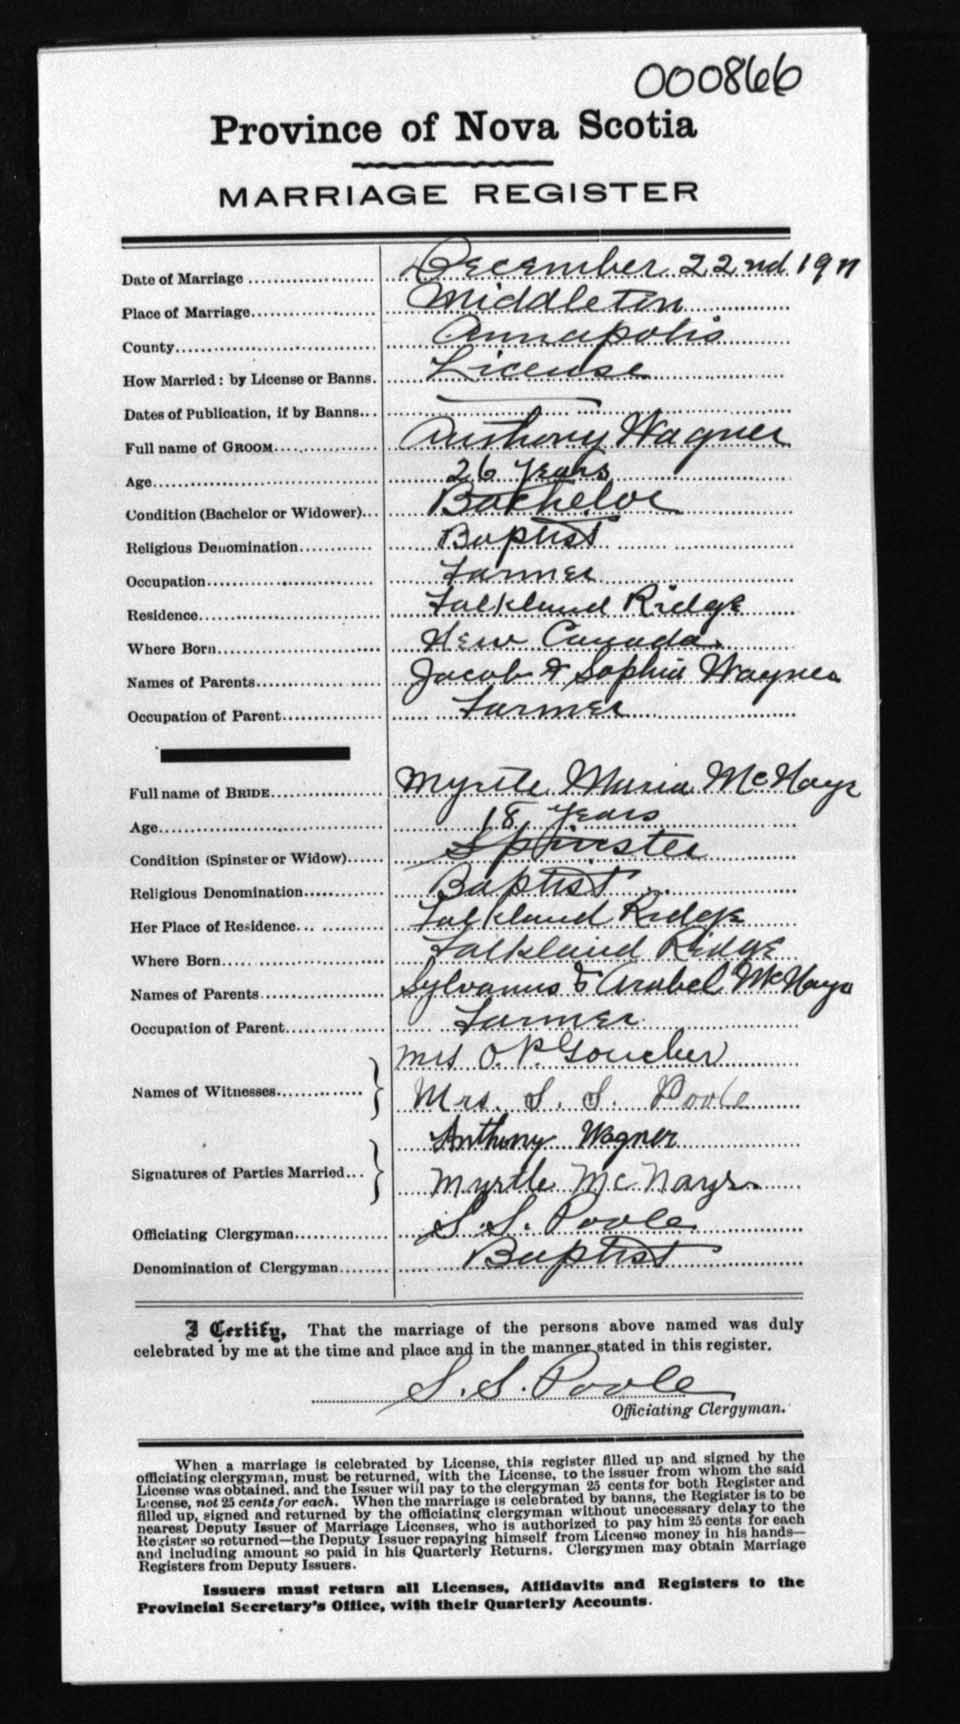 000866
Province of Nova Scotia
MARRIAGE REGISTER
Date of Marriage December 22nd 1911
Place of Marriage Middleton
County Annapolis
How Married: by License or Banns. License
Dates of Publication, if by Banns
Full name of GROOM Anthony Wagner
Age 26 Years
Condition (Bachelor or Widower) Bachelor
Religious Denomination Baptist
Occupation Farmer
Residence Falkland Ridge
Where Born New Canada
Names of Parents Jacob & Sophia Wagner
Occupation of Parent Farmer
Full name of BRIDE Myrtle Maria McNayr
Age 18 Years
Condition (Spinster or Widow) Spinster
Religious Denomination Baptist
Her Place of Residence Falkland Ridge
Where Born Falkland Ridge
Names of Parents Sylvanus & Arabel McNayr
Occupation of Parent Farmer
Mrs O. P. Goucher
Names of Witnesses
Mrs. S. S. Poole
Anthony Wagner
Signatures of Parties Married
Myrtle McNayr.
Officiating Clergyman S. S. Poole
Denomination of Clergyman Baptist
I Certify, That the marriage of the persons above named was duly
celebrated by me at the time and place and in the manner stated in this register.
S. S. Poole
Officiating Clergyman.
When a marriage is celebrated by License, this register filled up and signed by the
officiating clergyman, must be returned, with the License, to the issuer from whom the said
License was obtained, and the Issuer will pay to the clergyman 25 cents for both Register and
License, not 25 cents for each. When the marriage is celebrated by banns, the Register is to be
filled up, signed and returned by the officiating clergyman without unecessary delay to the
nearest Deputy Issuer of Marriage Licenses, who is authorized to pay him 25 cents for each
Register so returned—the Deputy Issuer repaying himself from License money in his hands—
and including amount so paid in his Quarterly Returns. Clergymen may obtain Marriage
Registers from Deputy Issuers.
Issuers must return all Licenses, Affidavits and Registers to the
Provincial Secretary's Office, with their Quarterly Accounts.